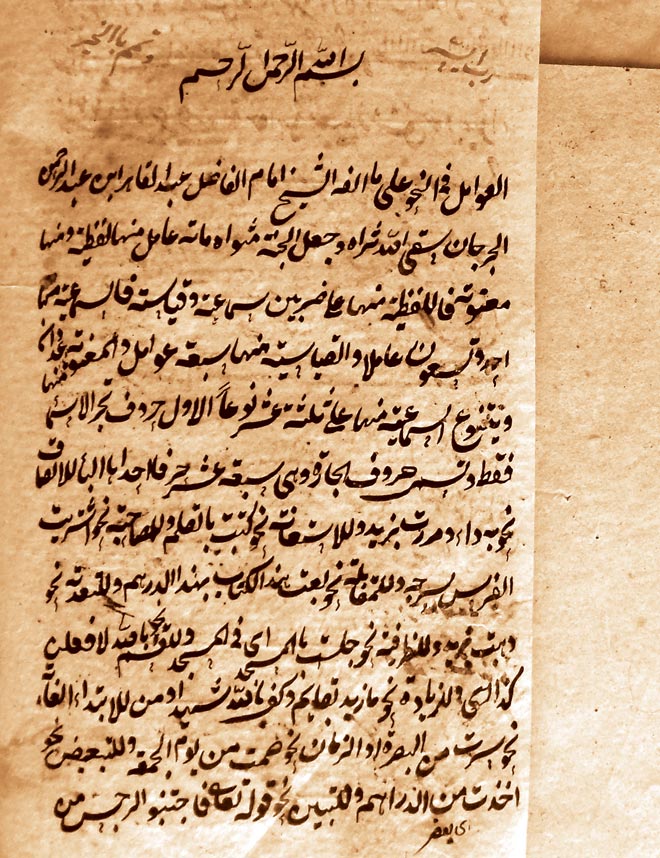 رب يسر
وتمم بالخير
بسم الله الرحمن الرحيم
العوامل في النحو على ما الفه الشيخ امام الفاضل عبد القاهر ابن عبد الرحمن
الجرجان سقى الله ثراه وجعل الجنة مثواه مائة عامل منها لفظية ومنها
معنوية فاللفظية منها على ضربين سماعية وقياسية فالسماعية منها
احد وتسعون عاملا والقياسية منها سبعة عوامل والمعنوية منها عددان
ويتنوع السماعية منها على ثلثة عشر نوعاً الاول حروف تجر الاسم
فقط وتسمى حروف الجارة وهي سبعة عشر حرفا احدها الباء للالصاق
نحو به داء ومررت بزيد وللاستعانة نحو كتبت بالقلم وللمصاحبة نحو اشتريت
الفرس بسرجه وللمقابلة نحو بعت هذا الكتاب بهذا الدرهم وللتعدية نحو
ذهبت بزيد وللظرفية نحو جلست بالمسجد اي في المسجد وللقسم نحو بالله لافعلن
كذا وللزيادة نحو ما زيد بقائم وكفى بالله شهيدا ومن للابتداء الغاية
نحو سرت من البصرة او الزمان نحو صمت من يوم الجمعة وللتبعيض نحو
اخذت من الدراهم وللتبيين نحو قوله تعالى فاجتنبوا الرجس من
اي بعض